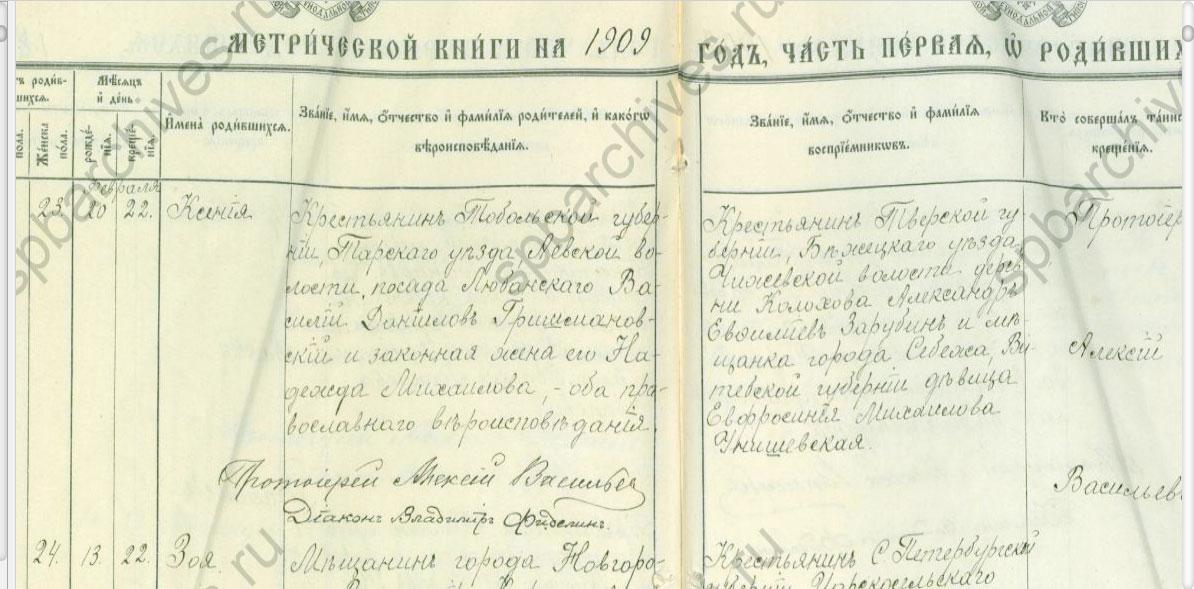 МЕТРИ́ЧЕСКОЙ КНИ́ГИ НА 1909 ГО́ДЪ, ЧА́СТЬ ПЕ́РВАЯ, Ѡ РОДИ́ВШИХ
тъ роди́в-
шихся.
Мѣ́сяцъ
и҆ де́нь.
пола.
Же́нска
по́ла.
рожде́-
нїя.
креще́-
нїя.
И҆мена̀ роди́вшихся.
Зва́нїе, и҆́мя, ѻ҆́тчество и҆ фами́лїя роди́телей, и҆ како́гѡ
вѣроисповѣ́данїя.
Зва́нїе, и҆́мя, ѻ҆́тчество и҆ фами́лїя
воспрїе́мниковъ.
Кто̀ соверша́лъ та́инс
креще́нїя.
Февраля
23. 20 22. Ксенія
Крестьянинъ Тобольской губер-
ніи, Тарскаго уѣзда, Аевской во-
лости, посада Любанскаго Ва-
силій Даніиловъ Гришманов-
скій и законная жена его На-
дежда Михаилова, - оба пра-
вославнаго вѣроисповѣданія.
Крестьянинъ Тверской гу-
берніи, Бѣжецкаго уѣзда,
Чижевской волости дерев-
ни Колохова Александръ
Евѳиміевъ Зарубинъ и мѣ-
щанка города Себежа, Ви-
тебской губерніи дѣвица
Евфросинія Михаилова
Унишевская.
Протоіер
Алексій
Васильев
Протоіерей Алексій Васильев
Діаконъ Владиміръ
24. 13. 22. Зоя.
Мѣщанинъ города Новгоро-
Крестьянинъ С Петербургской
губерніи Царскосельскаго
spbarchives.ru
spbarchives.ru
spbarchives.ru